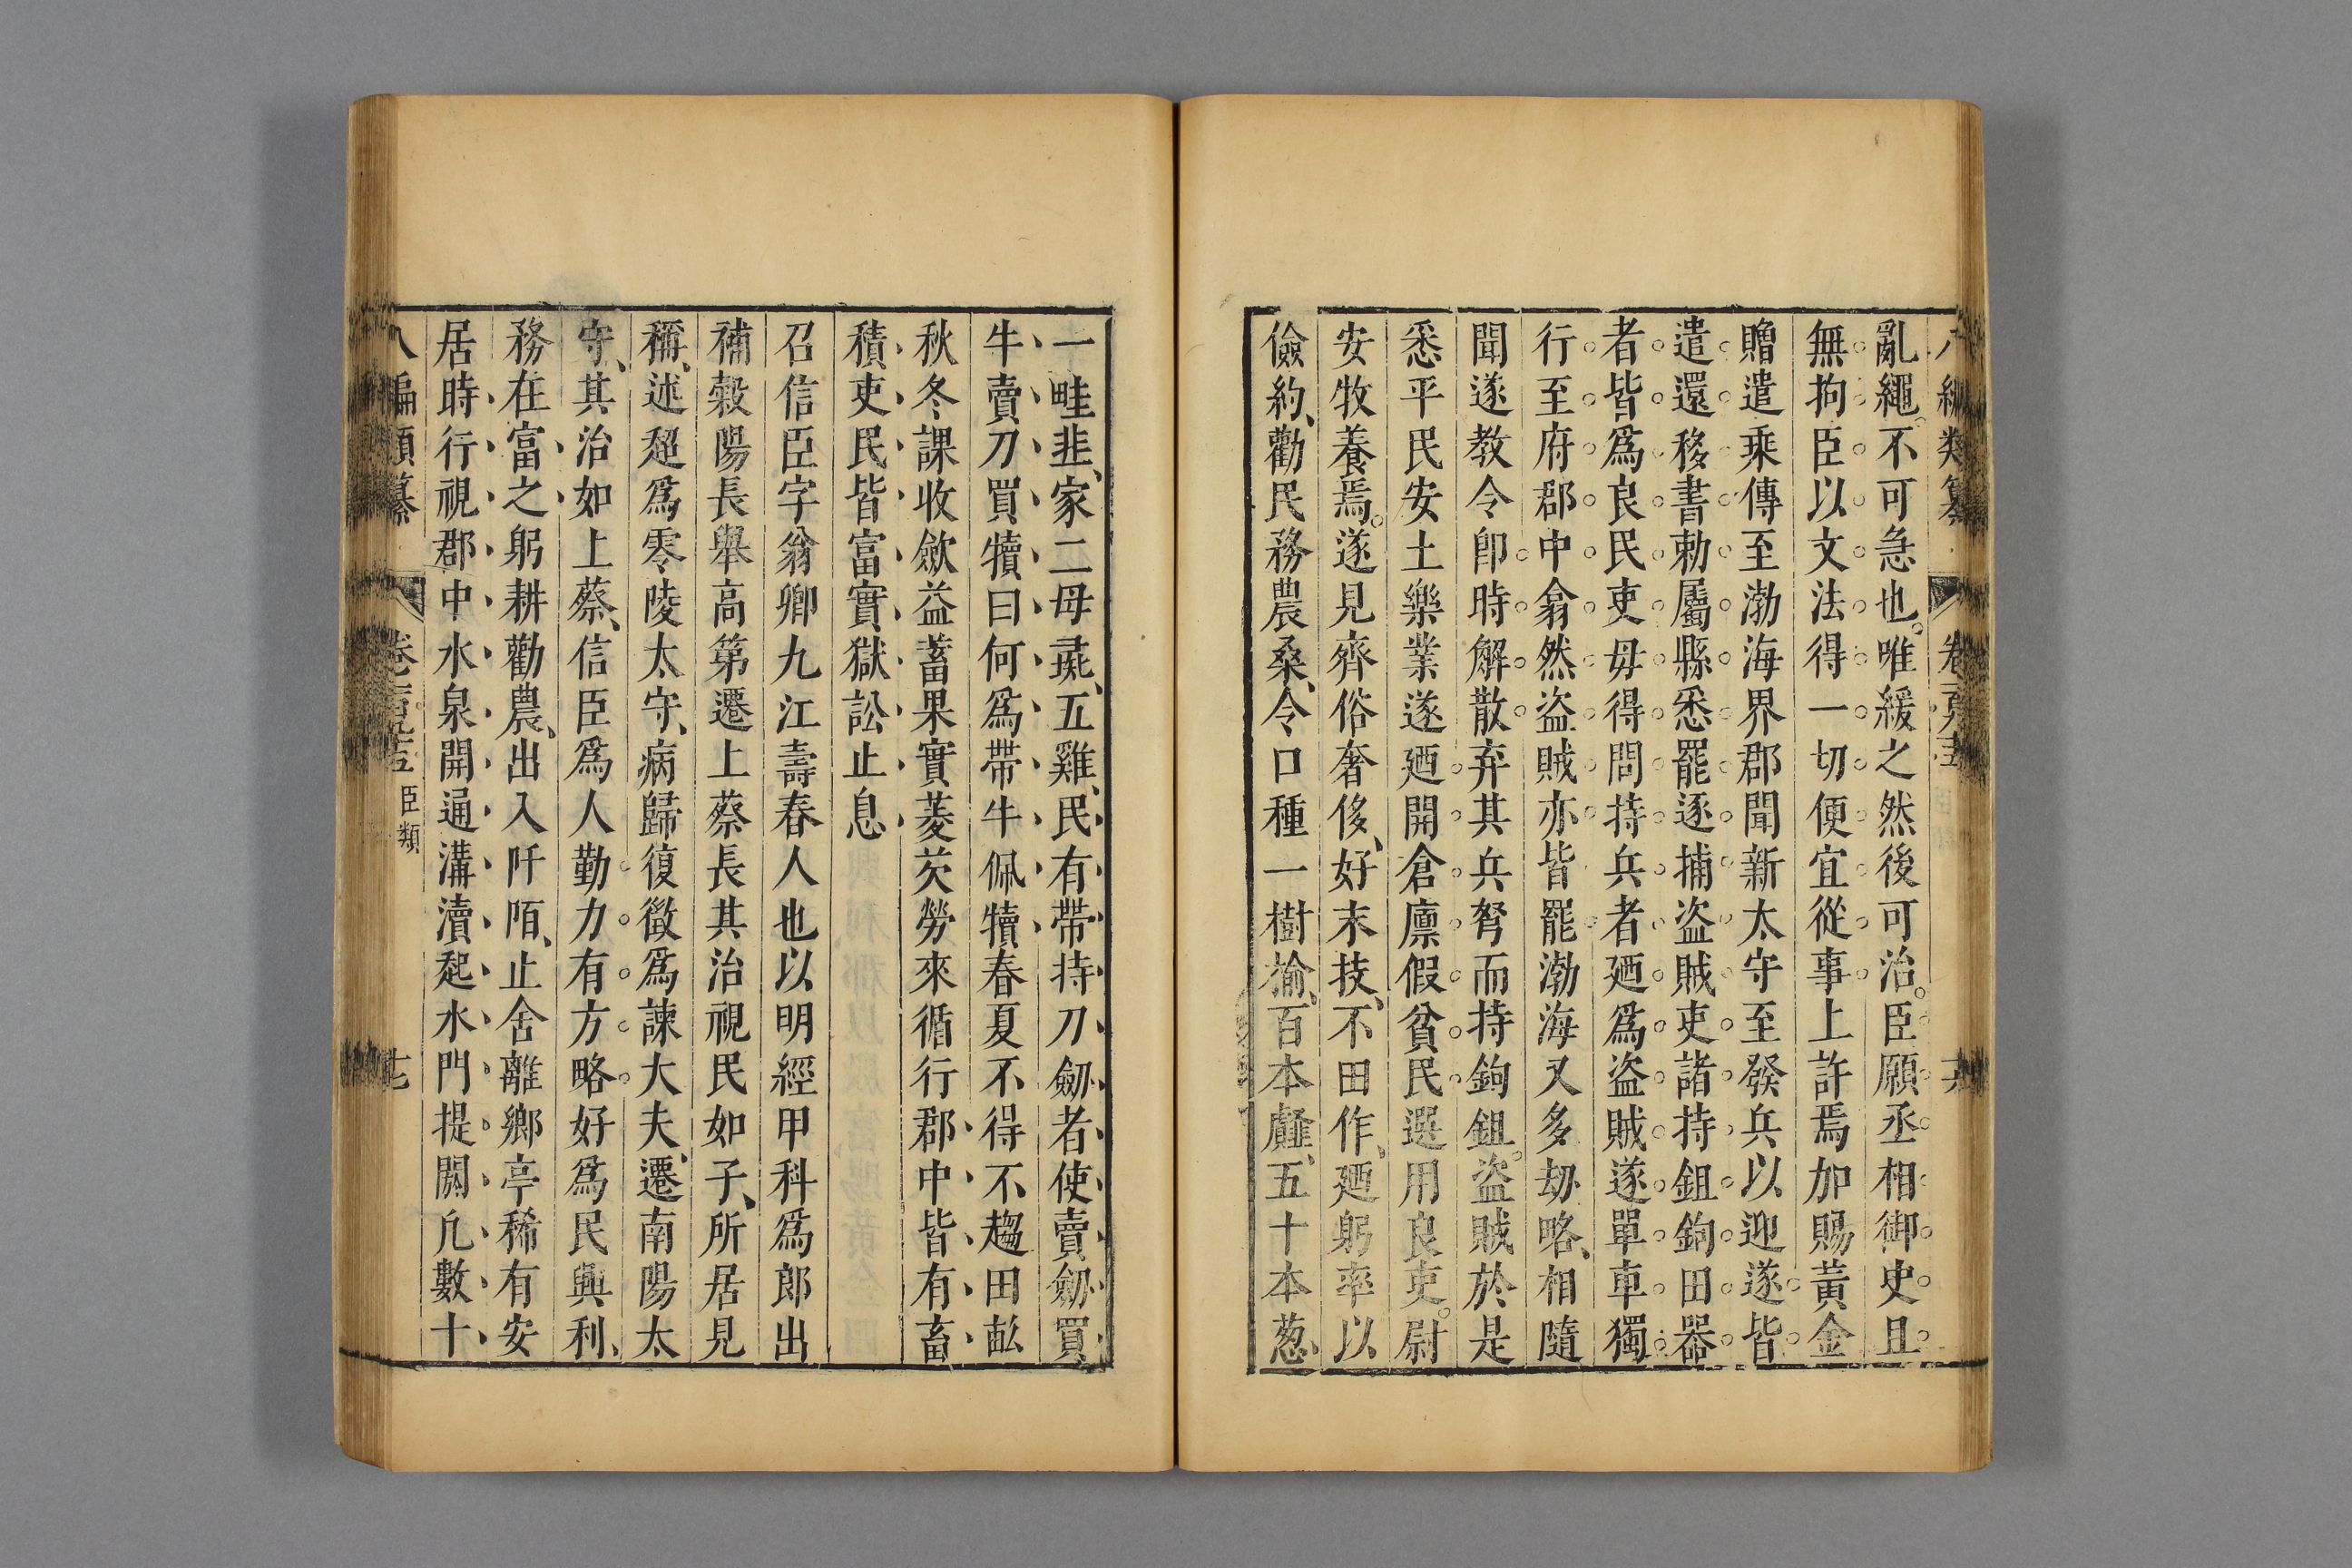 亂繩。不可急也。唯緩之然後可治。臣願丞相御史且
無拘臣以文法得一切便宜從事上許焉加賜黃金
贈遣乘傳至渤海界郡聞新太守至發兵以迎遂皆
遣還移書勅屬縣悉罷逐捕盜賊吏諸持鉏鉤田器
者皆爲良民吏毋得問持兵者廼爲盜賊遂單車獨
行至府郡中翕然盜賊亦皆罷渤海又多劫略、相隨
聞遂教令卽時解散弃其兵弩而持鉤鉏。盜賊於是
悉平民安土樂業遂廼開倉廪假貧民選用良吏。尉
安牧養焉。遂見齊俗奢侈、好末技、不田作、廼躬率以
儉約、勸民務農桑、令口種一樹榆、百本䪥、五十本葱、
一畦韭、家二母彘、五雞、民有帶持刀劒者使賣劒買
牛賣刀買犢曰何爲帶牛佩犢春夏不得不趨田畝
秋冬課收歛益蓄果實菱芡勞來循行郡中皆有畜
積、吏民皆富實獄訟止息
召信臣字翁卿九江壽春人也以明經甲科爲郎出
補穀陽長舉高第遷上蔡長其治視民如子、所居見
稱、述超爲零陵太守、病歸復徵爲諫大夫、遷南陽太
守、其治如上蔡、信臣爲人勤力有方略好爲民興利、
務在富之躬耕勸農、出入阡陌、止舍離鄉亭稀有安
居時行視郡中水泉開通溝瀆起水門提閼凡數十
八編類纂
臣類